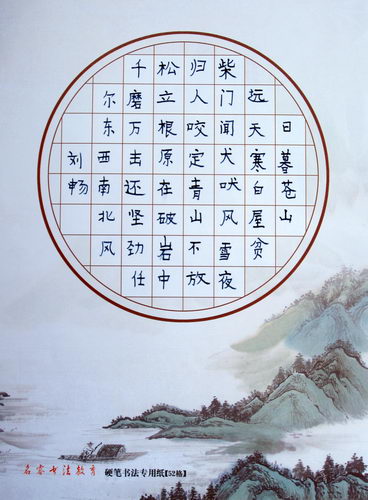 日暮苍山
远天寒白屋贫
柴门闻犬吠风雪夜
归人咬定青山不放
松立根原在破岩中
千磨万击还坚劲任
尔东西南北风
刘畅
名家书法教育 硬笔书法专用纸【52格】